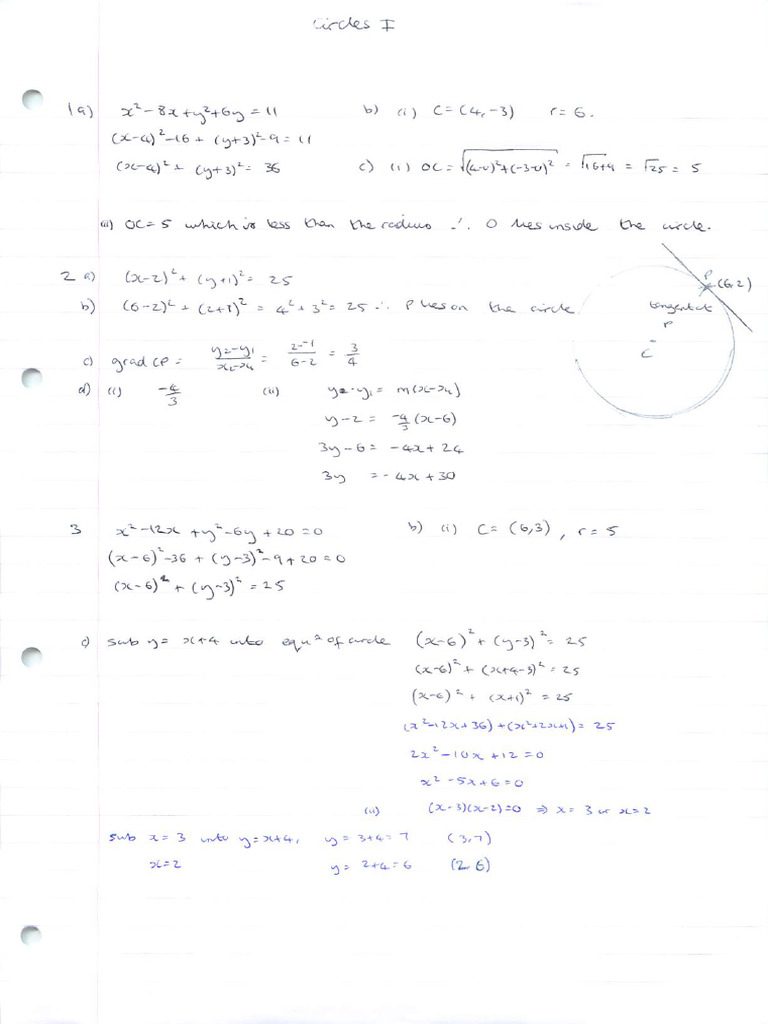 Circles I
1a) x²-8x+y²+6y=11 b) (i) C=(4,-3) r=6.
(x-4)²-16+(y+3)²-9=11
(x-4)²+(y+3)²=36 c) (i) OC=√(4-0)²+(-3-0)² = √16+9 = √25 = 5
(ii) OC=5 which is less than the radius ∴ O lies inside the circle.
2 a) (x-2)²+(y+1)²=25
b) (6-2)²+(2+1)²=4²+3²=25 ∴ P lies on the circle
P (6,2)
tangent at
P
C
c) grad CP = y₂-y₁/x₂-x₁ = 2--1/6-2 = 3/4
d) (i) -4/3 (ii) y-y₁ = m(x-x₁)
y-2 = -4/3(x-6)
3y-6 = -4x+24
3y = -4x+30
3 x²-12x+y²-6y+20=0 b) (i) C=(6,3), r=5
(x-6)²-36+(y-3)²-9+20=0
(x-6)²+(y-3)²=25
c) sub y=x+4 into equⁿ of circle (x-6)²+(y-3)²=25
(x-6)²+(x+4-3)²=25
(x-6)²+(x+1)²=25
(x²-12x+36)+(x²+2x+1)=25
2x²-10x+12=0
x²-5x+6=0
(ii) (x-3)(x-2)=0 ⇒ x=3 or x=2
sub x=3 into y=x+4, y=3+4=7 (3,7)
x=2 y=2+4=6 (2,6)